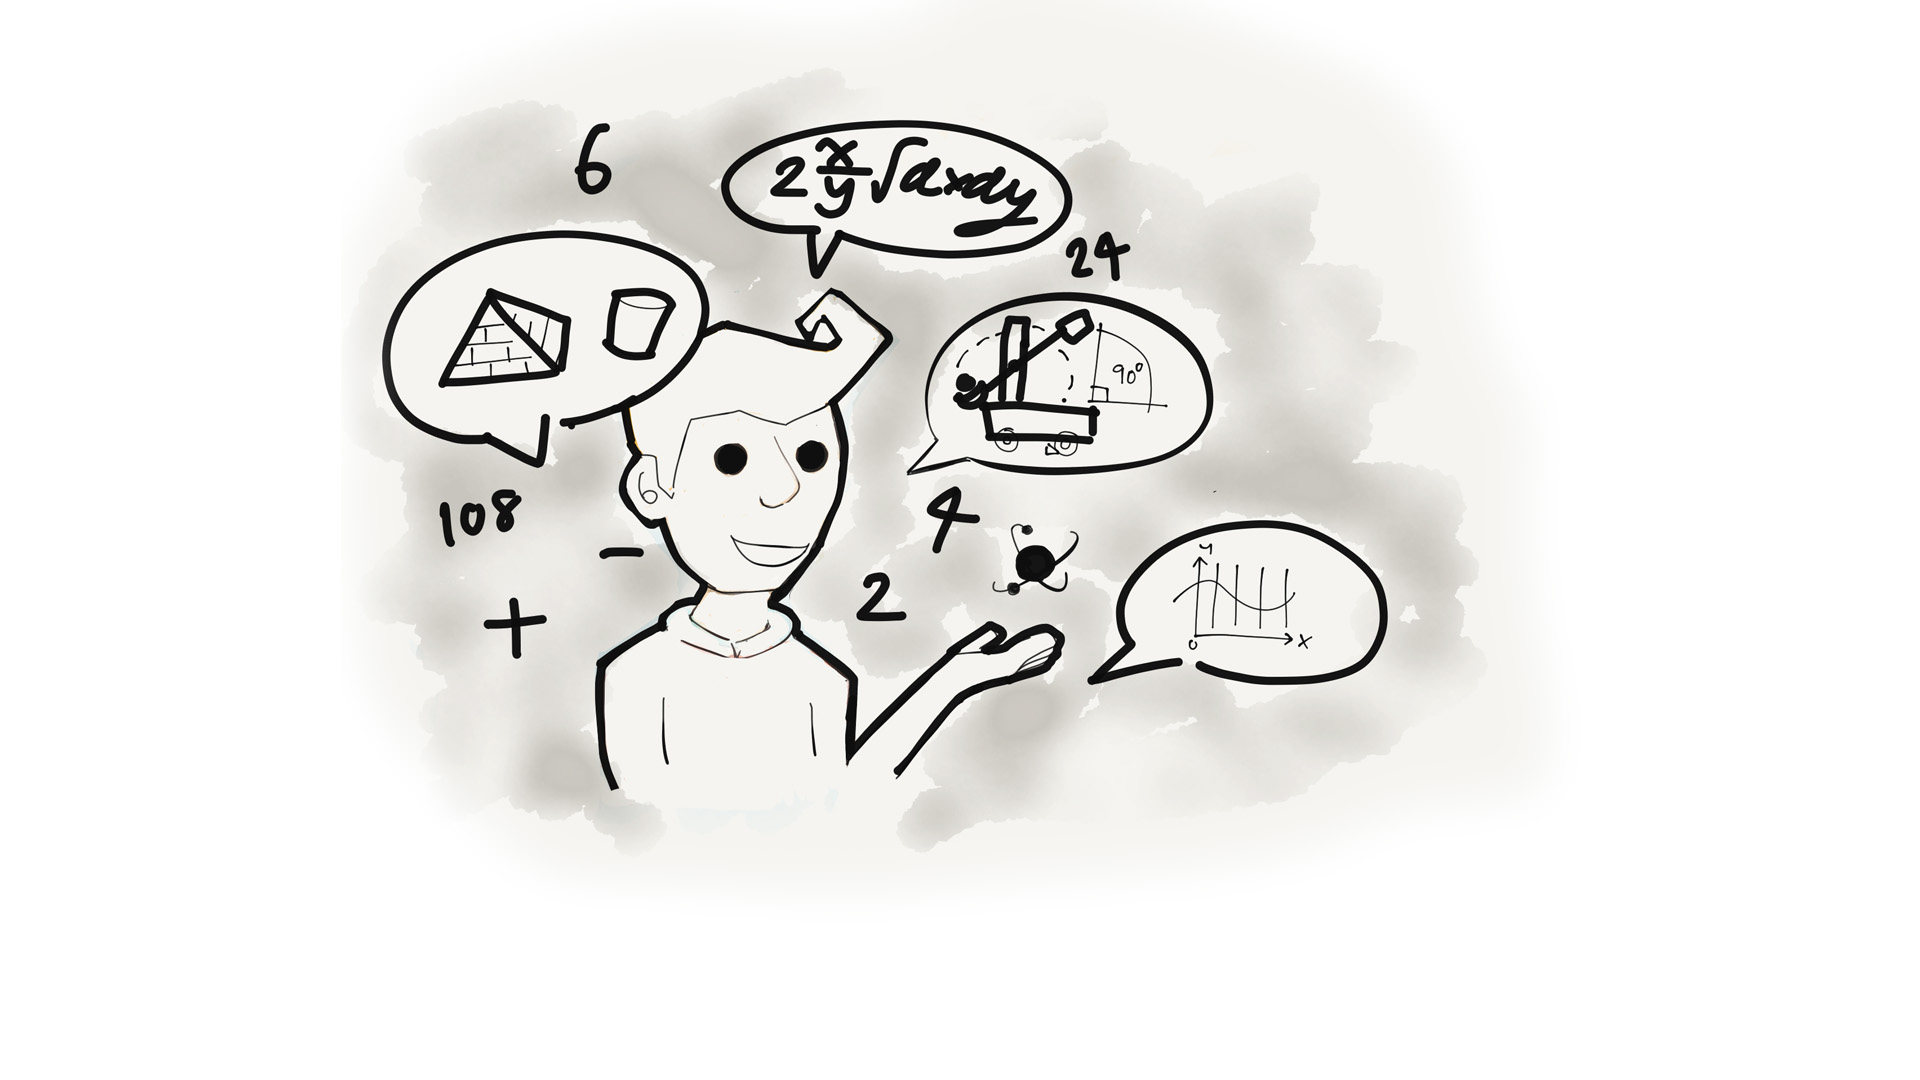 6
2 x/y √dxdy
24
90°
108
4
-
2
+
y
0
x